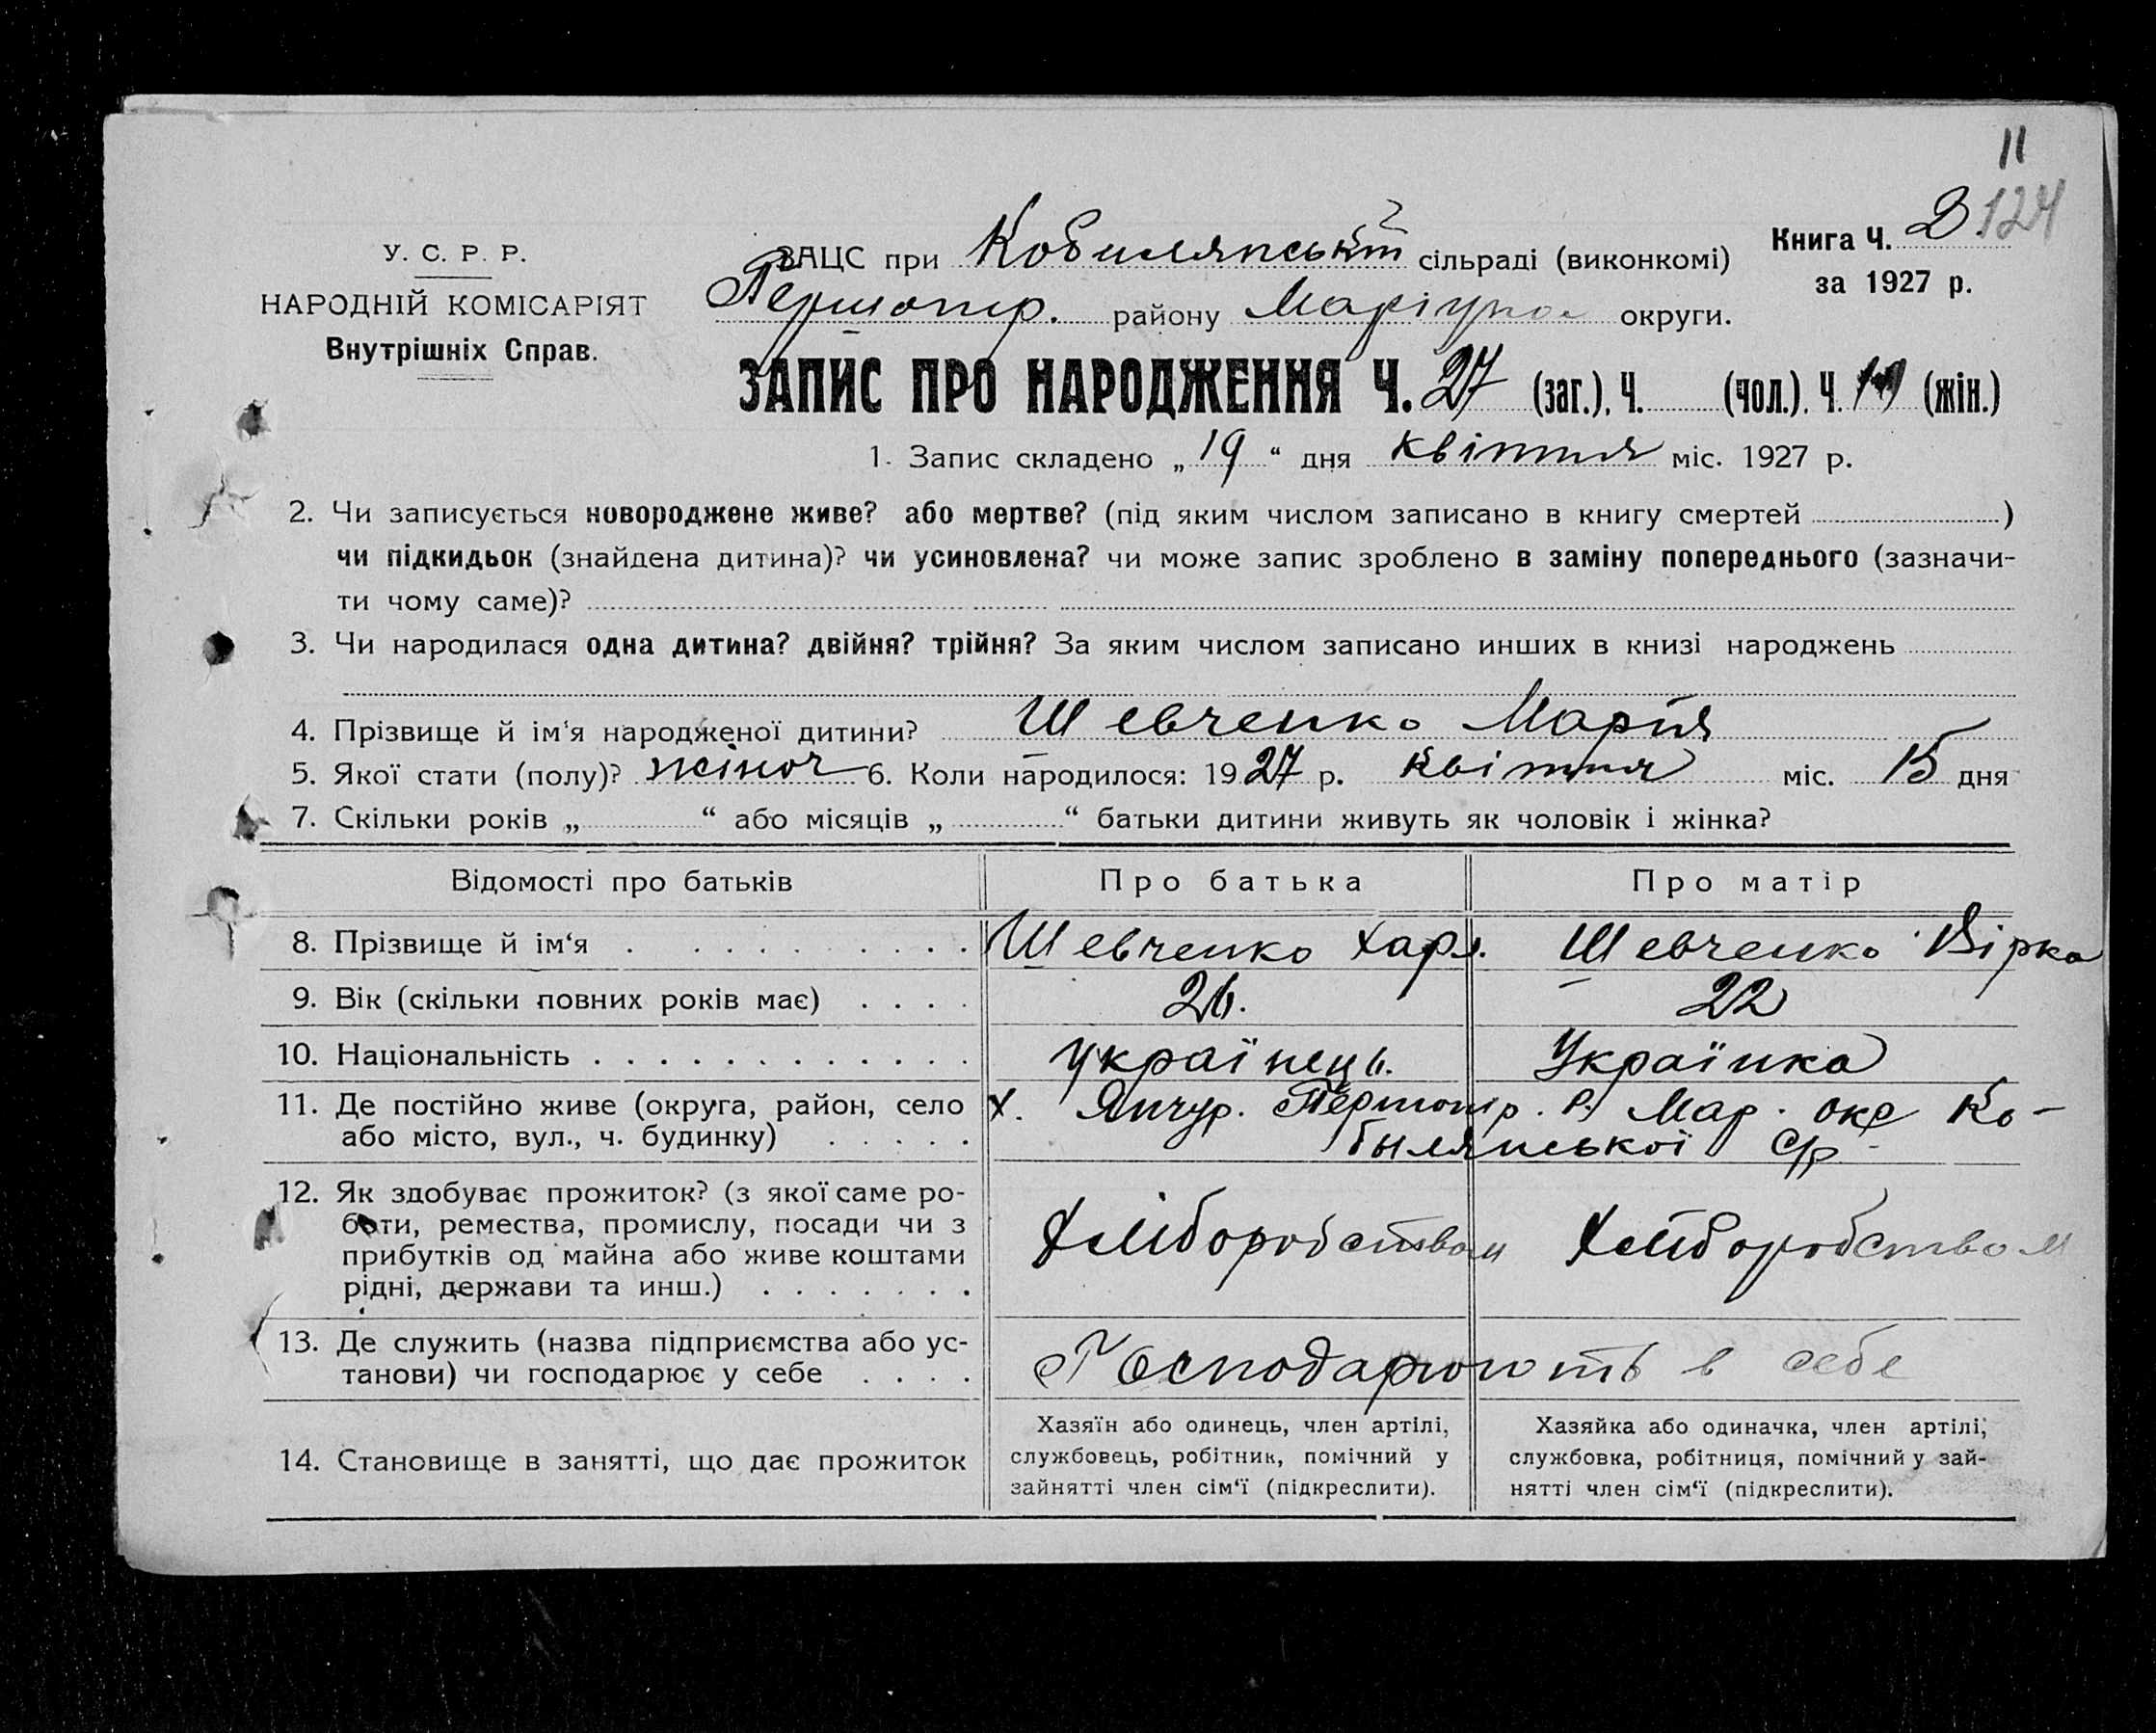 11
124
У. С. Р. Р.
НАРОДНІЙ КОМІСАРІЯТ
Внутрішніх Справ.
ЗАЦС при Кобиляпській сільраді (виконкомі)
Першопр. району Маріупол округи.
Книга Ч. 2
за 1927 р.
ЗАПИС ПРО НАРОДЖЕННЯ Ч. 27 (заг.), Ч. (чол.). Ч. (жін.)
1. Запис складено „19“ дня квітня міс. 1927 р.
2. Чи записується новороджене живе? або мертве? (під яким числом записано в книгу смертей )
чи підкидьок (знайдена дитина)? чи усиновлена? чи може запис зроблено в заміну попереднього (зазначи-
ти чому саме)?
3. Чи народилася одна дитина? двійня? трійня? За яким числом записано инших в книзі народжень
4. Прізвище й ім‘я народженої дитини? Шевченко Марія
5. Якої стати (полу)? жіноч 6. Коли народилося: 1927 р. квітня міс. 15 дня
7. Скільки років „ “ або місяців „ “ батьки дитини живуть як чоловік і жінка?
Відомості про батьків Про батька Про матір
8. Прізвище й ім‘я Шевченко Хар. Шевченко Вірка
9. Вік (скільки повних років має) 26. 22
10. Національність українець. Українка
11. Де постійно живе (округа, район, село х. Янчур. Першопр. Р. Мар. окр Ко-
або місто, вул., ч. будинку) былянської с/р
12. Як здобуває прожиток? (з якої саме ро-
боти, ремества, промислу, посади чи з
прибутків од майна або живе коштами
рідні, держави та инш.) Хліборобством Хліборобством
13. Де служить (назва підприємства або ус-
танови) чи господарює у себе Господарюють в себе
14. Становище в занятті, що дає прожиток
Хазяїн або одинець, член артілі,
службовець, робітник, помічний у
зайнятті член сім‘ї (підкреслити).
Хазяйка або одиначка, член артілі,
службовка, робітниця, помічний у зай-
нятті член сім‘ї (підкреслити).